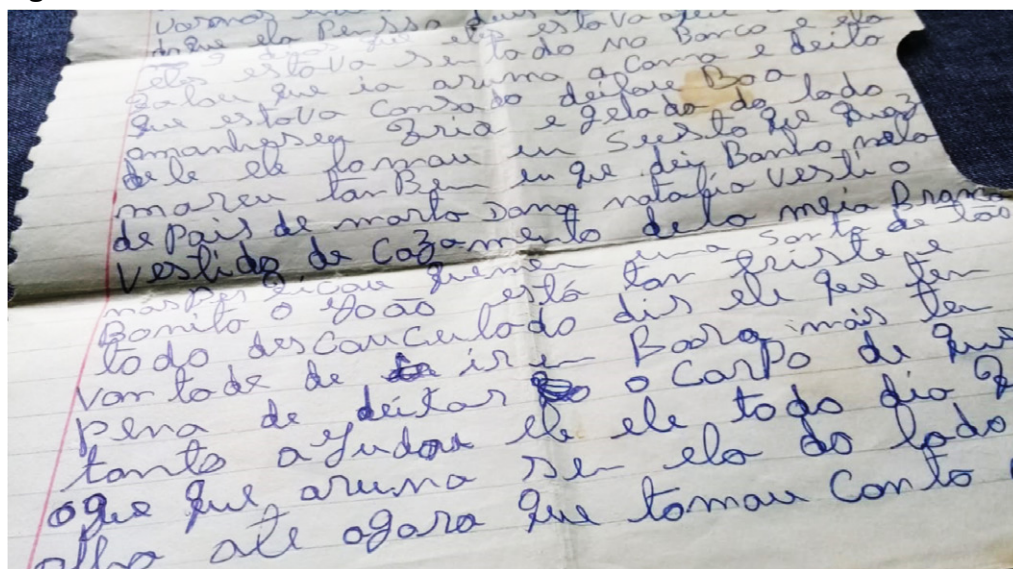 vamos
dique ela Pensso deus
eles estava sentado no Banco e ela
falou que ia aruma a cama e deita
que estava cansado deitou Boa
amanhseu fria e gelada do lado
dele ele tomou un susto que quaz
moreu tanBem eu que dei Banho nela
depois de morta Dona natalia vesti o
vestido de cazamento dela meia Branca
ficou quenen uma santa de tão
Bonita o João está tan triste e
todo desconculado dis ele que ten
vontade de ir en Boora mais ten
pena de deitar o corpo de quen
tanto ajudou ele ele todo dia
oque que aruma sen ela do lado
olha ate agora que tomou conto